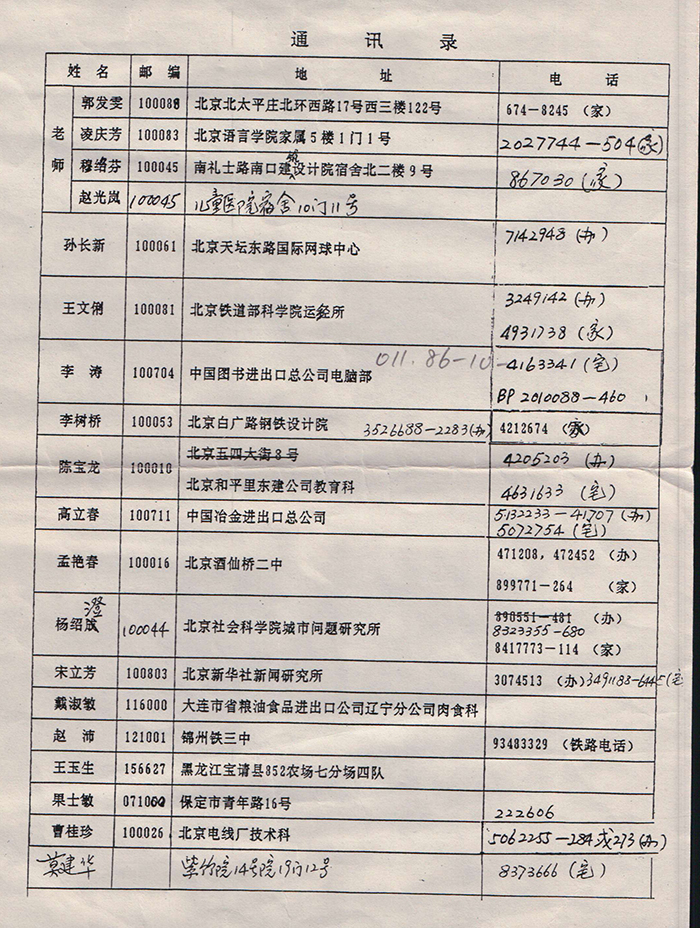 通 讯 录
姓 名 邮 编 地 址 电 话
老师
郭发雯 100088 北京北太平庄北环西路17号西三楼122号 674-8245 (家)
凌庆芳 100083 北京语言学院家属5楼1门1号 2027744-504(家)
穆绪芬 100045 南礼士路南口建筑设计院宿舍北二楼9号 867030(家)
赵光岚 100045 儿童医院宿舍10门11号
孙长新 100061 北京天坛东路国际网球中心 7142948(办)
王文俐 100081 北京铁道部科学院运经所 3249142(办)
4931738(家)
李 涛 100704 中国图书进出口总公司电脑部 011.86-10-4163341(宅)
BP 2010088-460
李树桥 100053 北京白广路钢铁设计院 3526688-2283(办) 4212674 (家)
陈宝龙 100010 北京五四大街8号 4205203(办)
北京和平里东建公司教育科 4631633(宅)
高立春 100711 中国冶金进出口总公司 5132233-41707(办)
5072754(宅)
孟艳春 100016 北京酒仙桥二中 471208, 472452 (办)
899771-264 (家)
杨绍澄 100044 北京社会科学院城市问题研究所 890551-481 (办)
8323355-680
8417773-114 (家)
宋立芳 100803 北京新华社新闻研究所 3074513 (办)3491188-6445(宅
戴淑敏 116000 大连市省粮油食品进出口公司辽宁分公司肉食科
赵 沛 121001 锦州铁三中 93483329 (铁路电话)
王玉生 156627 黑龙江宝请县852农场七分场四队
果士敏 071000 保定市青年路16号 222606
曹桂珍 100026 北京电线厂技术科 5062255-284或273(办)
莫建华 紫竹院14号院19门12号 8373666(宅)